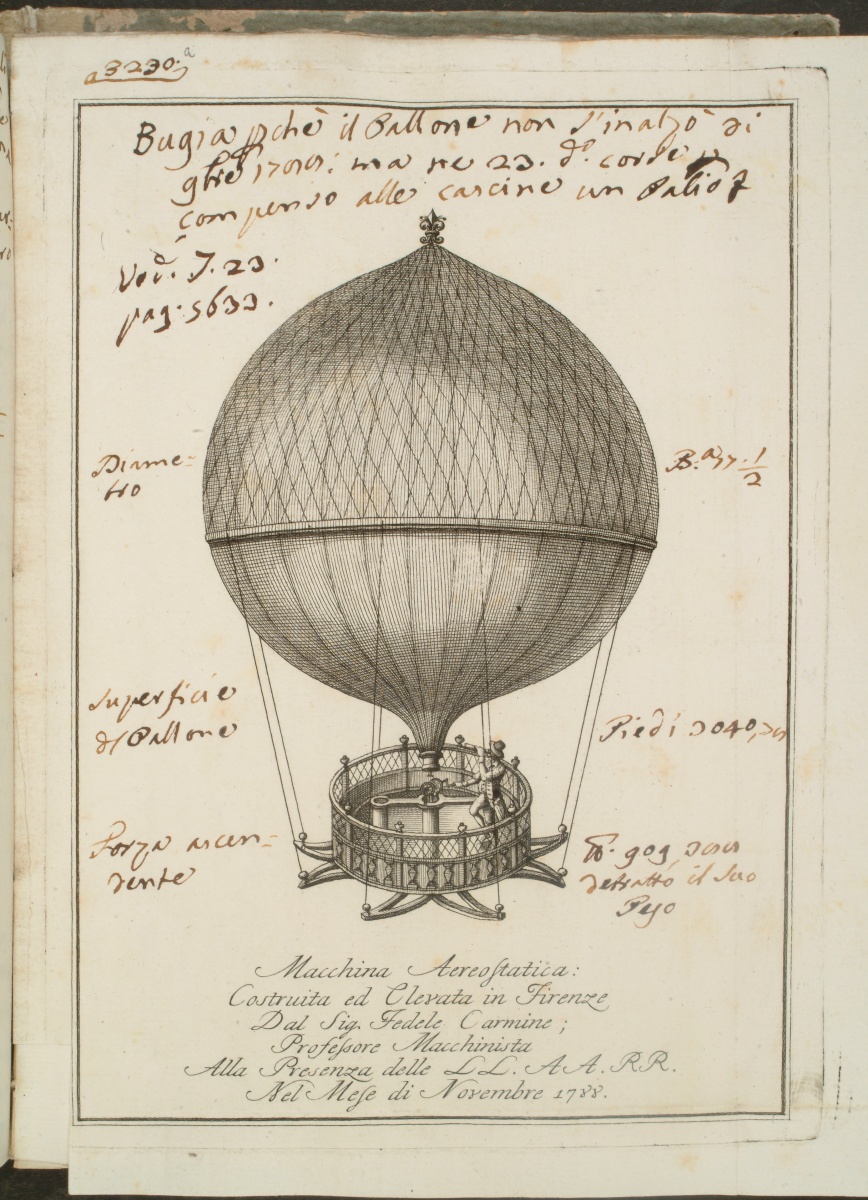 a 3230. a
Bugia pchè il Pallone non s'inalzò di
ma ne 23. d.º corse
compenso alle cascine un Palio
Ved. T. 23.
pag. 5633.
Diame-
tro
B.ª 17. 1/2
Superficie
dl Pallone
Piedi 3040,
Forza ascen-
dente
909
detratto il suo
Peso
Macchina Aereoſtatica:
Coſtruita ed Elevata in Firenze
Dal Sig. Fedele Carmine;
Profeſsore Macchinista
Alla Presenza delle LL. AA. RR.
Nel Meſe di Novembre 1788.